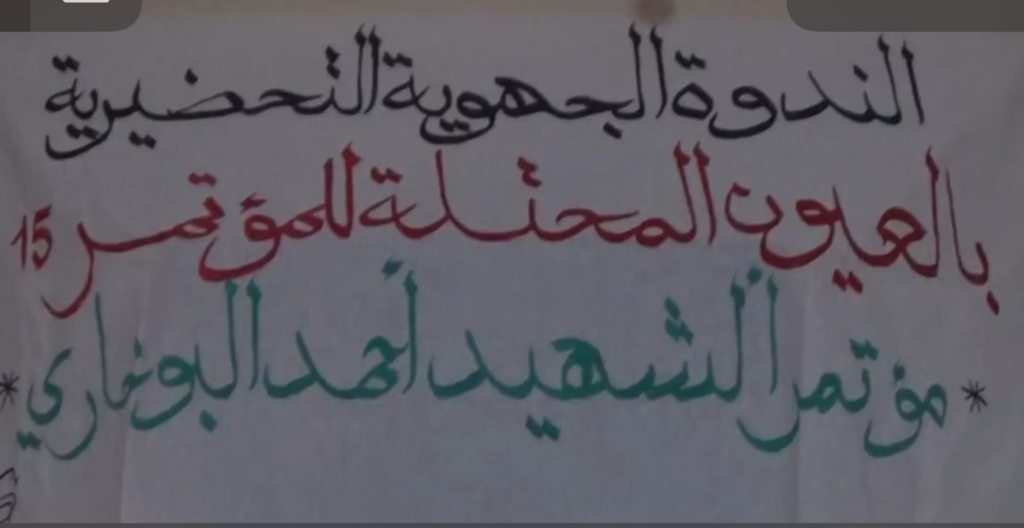 الندوة الجهوية التحضيرية
بالعيون المحتلة للمؤتمر 15
* مؤتمر الشهيد أحمد البوخاري *